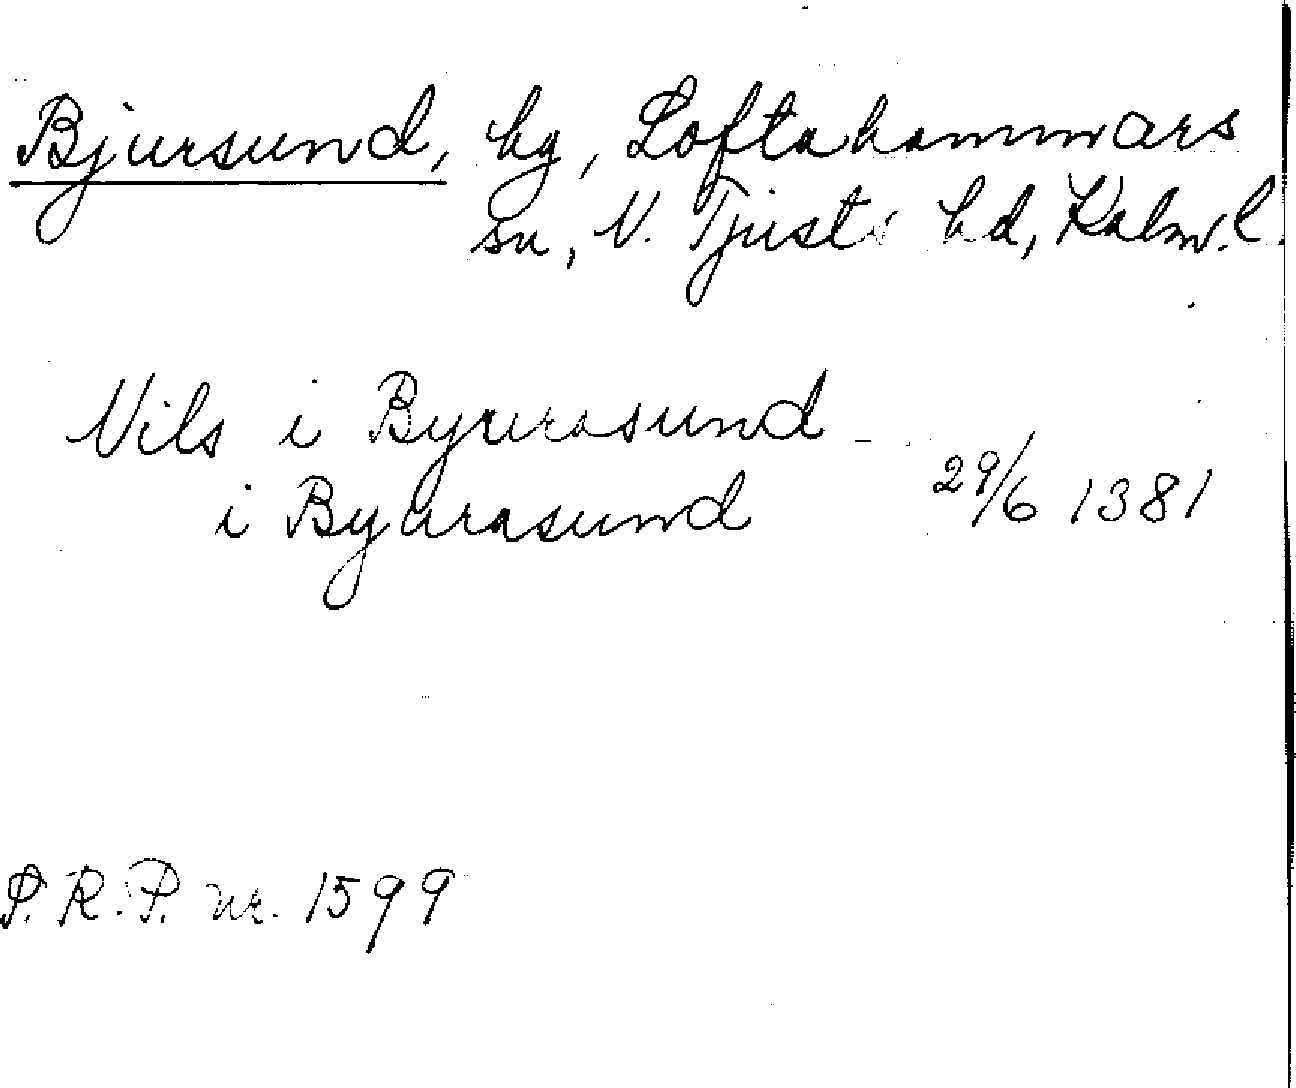 Bjursund, hg, Loftahammars
sn, N. Tjusts hd, Kalm. l.
Nils i Byurasund
i Byurasund 29/6 1381
S. R. P. nr. 1599